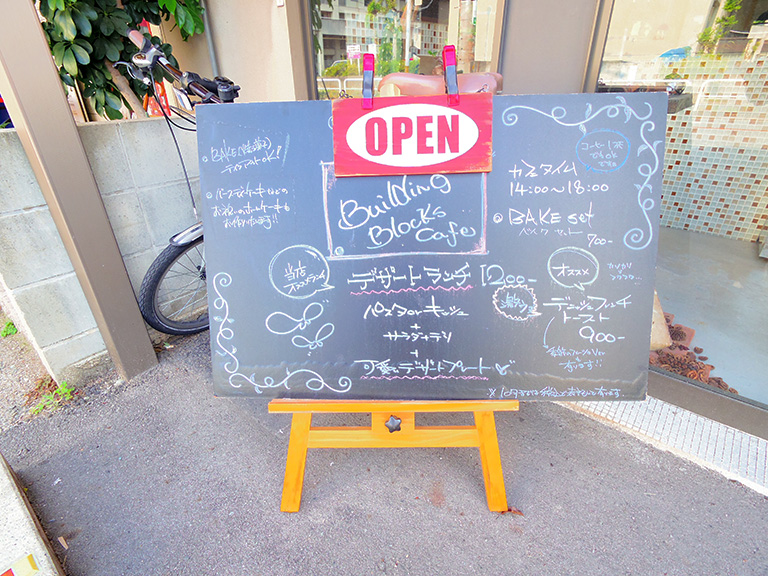 OPEN
BuilNing
Blocks
Cafe
BAKE(焼菓子)
テイクアウトOK!
バースデイケーキなどの
お祝いのホールケーキも
お作りします!!
当店
オススメランチ
デザートランチ 1200-
パスタorキッシュ
+
サラダ
+
可愛いデザートプレート
コーヒー1杯
でもok
です
カフェタイム
14:00~18:00
BAKE set
ベイクセット
700-
オススメ
デニッシュフレンチ
トースト
900-